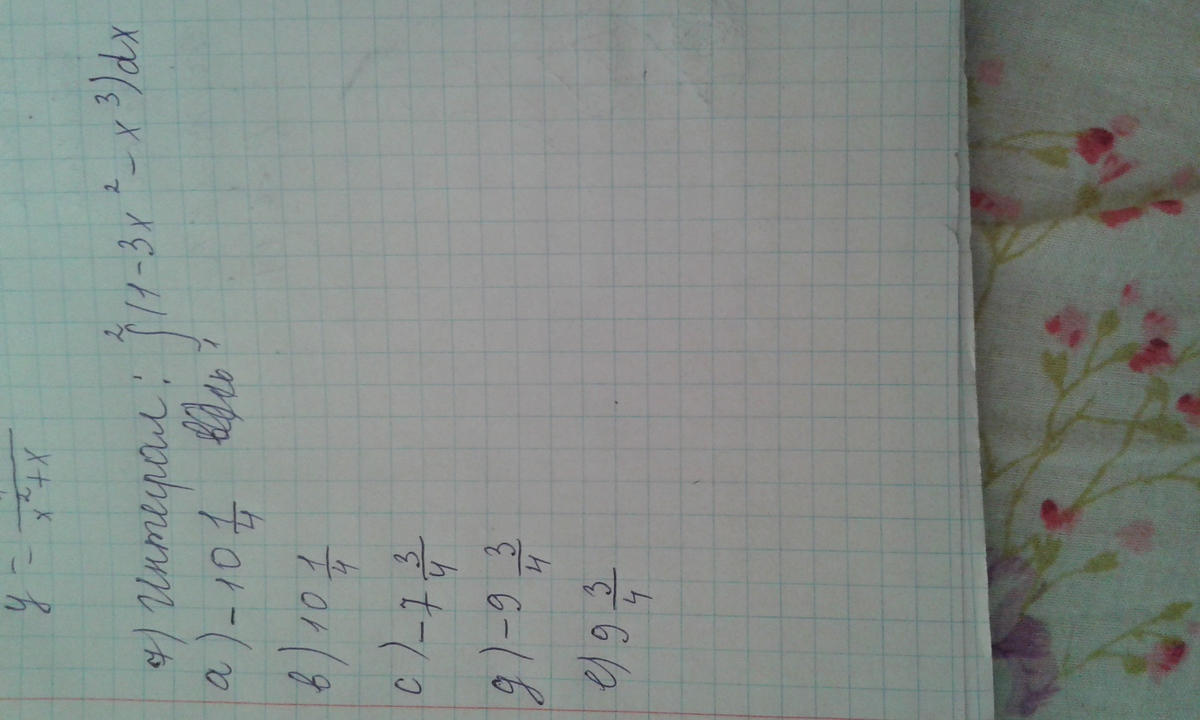 y = ─── x² + x
7) Интеграл: ∫₁² (1 - 3x² - x³)dx
a) - 10 1/4
в) 10 1/4
c) - 7 3/4
g) - 9 3/4
e) 9 3/4